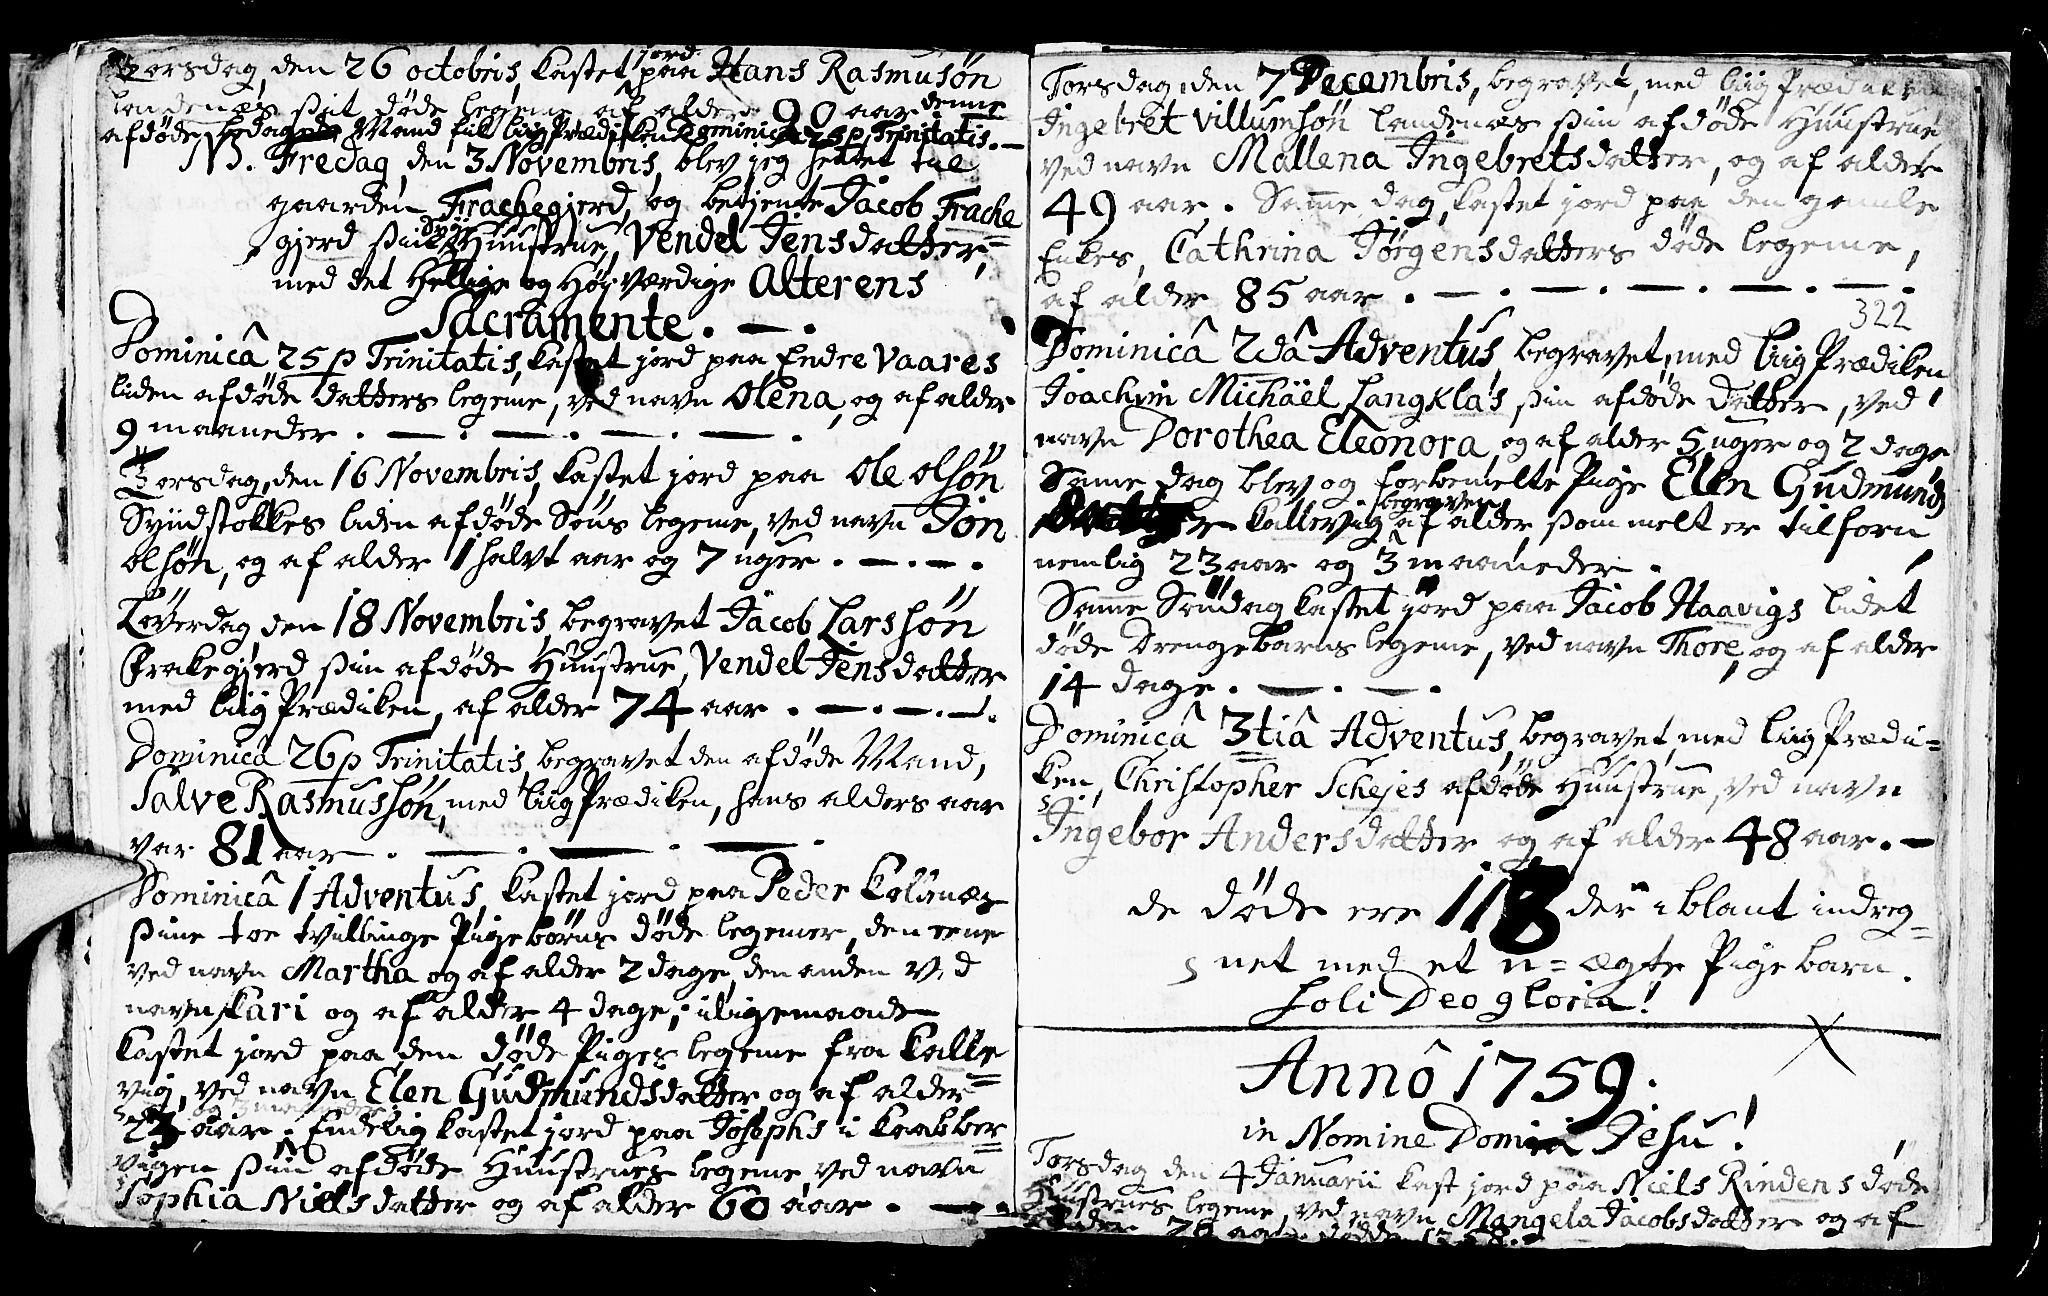 Torsdag, den 26 octobris, kastet jord paa Hans Rasmusøn
landenæs siit døde legeme af alder 90 aar denne
afdøde bedagede Mand fik liig Prædiken Dominica 25 p Trinitatis. —
NB. Fredag, den 3 Novembris, blev jeg hentet til
gaarden Frachegjerd, og betjente Jacob Frache
gjerd siin syge Huustrue, Vendel Jensdatter,
med det Hellige og Høyværdige Alterens
Sacramente. — .
Dominicâ 25 p Trinitatis, kastet jord paa Endre Vaares
liden afdøde datters legeme, ved navn Olena, og af alder
9 maaneder. — . — . — . — .
Torsdag, den 16 Novembris, kastet jord paa Ole Olsøn
Syndstokkes liden afdøde Søns legeme, ved navn Jon
olsøn, og af alder 1 halvt aar og 7 uger. — . — .
Løverdag den 18 Novembris, begravet Jacob Larssøn
Frakegjerd siin afdøde Huustrue, Vendel Jensdatter
med liig Prædiken, af alder 74 aar. — . — . — .
Dominicâ 26 p Trinitatis, begravet den afdøde Mand,
Salve Rasmussøn, med liig Prædiken, hans alders aar
var 81 aar — . — . — . — .
Dominicâ 1 Adventus, kastet jord paa Peder Kolsnæs
siine toe tvillinge Pigebørns døde legemer, den eene
ved navn Martha og af alder 2 dage, den anden ved
navn Kari og af alder 4 dage, iligemaade
kastet jord paa den døde Piges legeme fra Kalle
vig, ved navn Elen Gudmundsdatter og af alder
23 aar og 3 maaneder. Endelig kastet jord paa Josephs i Krabber
vigen siin afdøde Huustrues legeme, ved navn
Sophia Nielsdatter og af alder 60 aar. —
Torsdag, den 7 Decembris, begravet, med liig Prædiken
Ingebret Villumsøn landenæs siin afdøde Huustrue
ved navn Mallena Ingebretsdatter, og af alder
49 aar. Samme dag, kastet jord paa den gamle
Enkes, Cathrina Jørgensdatters døde legeme,
af alder 85 aar. — . — . — . — . — .
322
Dominicâ 2dâ Adventus, begravet, med liig Prædiken
Joachim Michäel Langklas siin afdøde Datter, ved
navn Dorothea Eleonora, og af alder 5 uger og 2 dage
Samme dag blev og forbemelte Pige Elen Gudmunds
datter Kallevig begraven, af alder, som melt er tilforn,
nemlig 23 aar og 3 maaneder.
Samme Søndag kastet jord paa Jacob Haavigs lidet
døde Drengebarns legeme, ved navn Thore, og af alder
14 dage. — . — .
Dominicâ 3tiâ Adventus, begravet, med liig Prædi=
ken, Christopher Schejes afdøde Huustrue, ved navn
Ingebor Andersdatter og af alder 48 aar. —
de døde ere 118 der iblant indreg=
net med et u=ægte Pigebarn.
Soli Deo gloria!
Annô 1759.
in Nomine Domini Jesu!
Torsdag den 4 Januarii kast jord paa Niels Rindens døde
Huustrues legeme, ved navn Mangela Jacobsdatter og af
alder 26